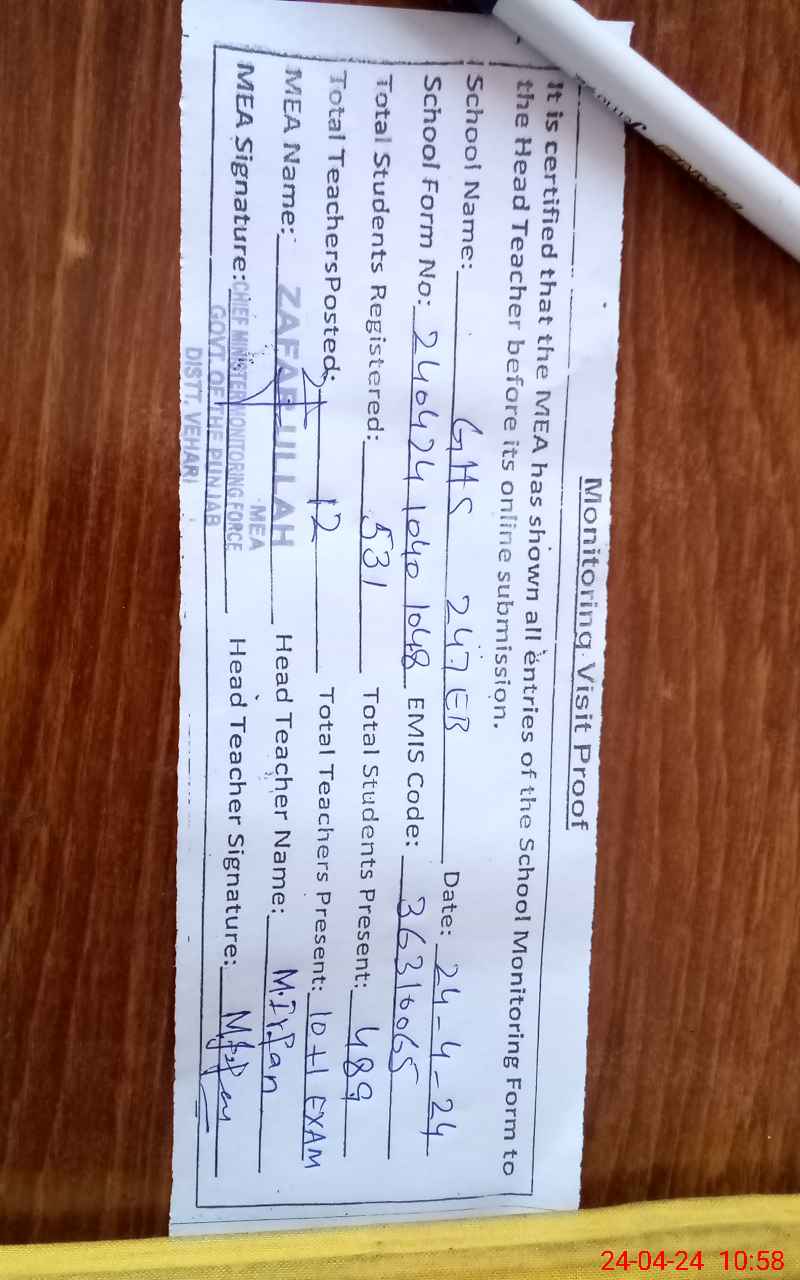 Monitoring Visit Proof
It is certified that the MEA has shown all entries of the School Monitoring Form to
the Head Teacher before its online submission.
School Name: GHS 247 EB Date: 24-4-24
School Form No: 240424 1040 1048 EMIS Code: 36310065
Total Students Registered: 531 Total Students Present: 489
Total TeachersPosted: 12 Total Teachers Present: 10+1 EXAM
MEA Name: ZAFAR ULLAH Head Teacher Name: M.Irfan
MEA
MEA Signature: CHIEF MINISTER MONITORING FORCE Head Teacher Signature:
GOVT. OF THE PUNJAB
DISTT. VEHARI
24-04-24 10:58